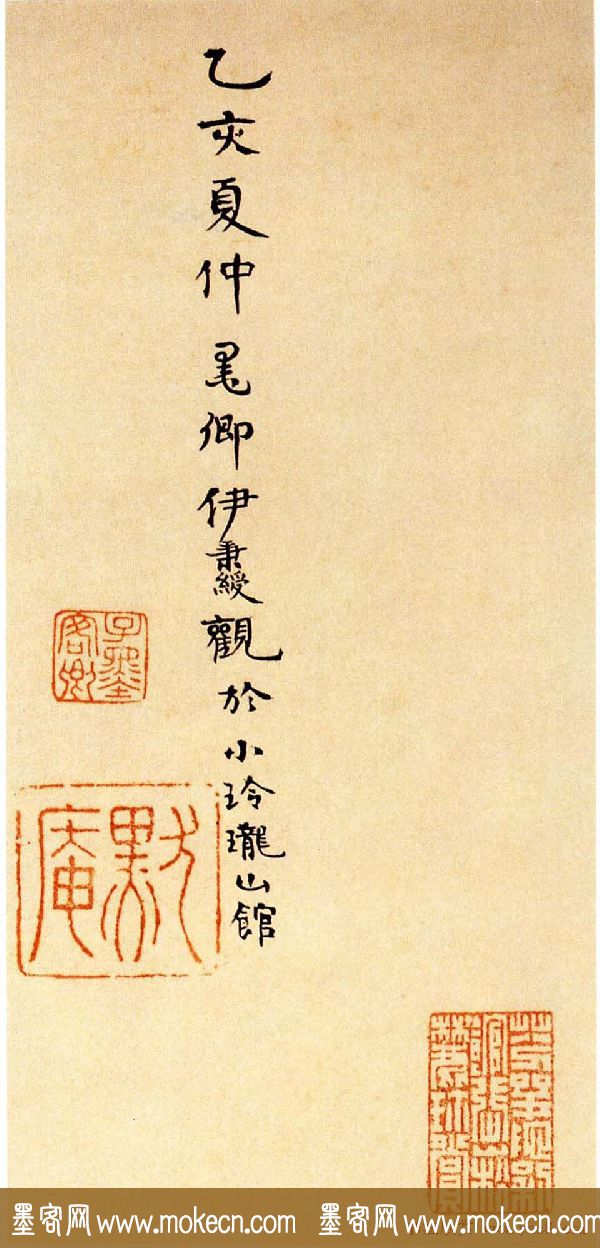 乙亥夏仲墨卿伊秉綬觀於小玲瓏山館
子墨客卿
默庵
墨客网 www.mokecn.com 墨客网 www.mokecn.com